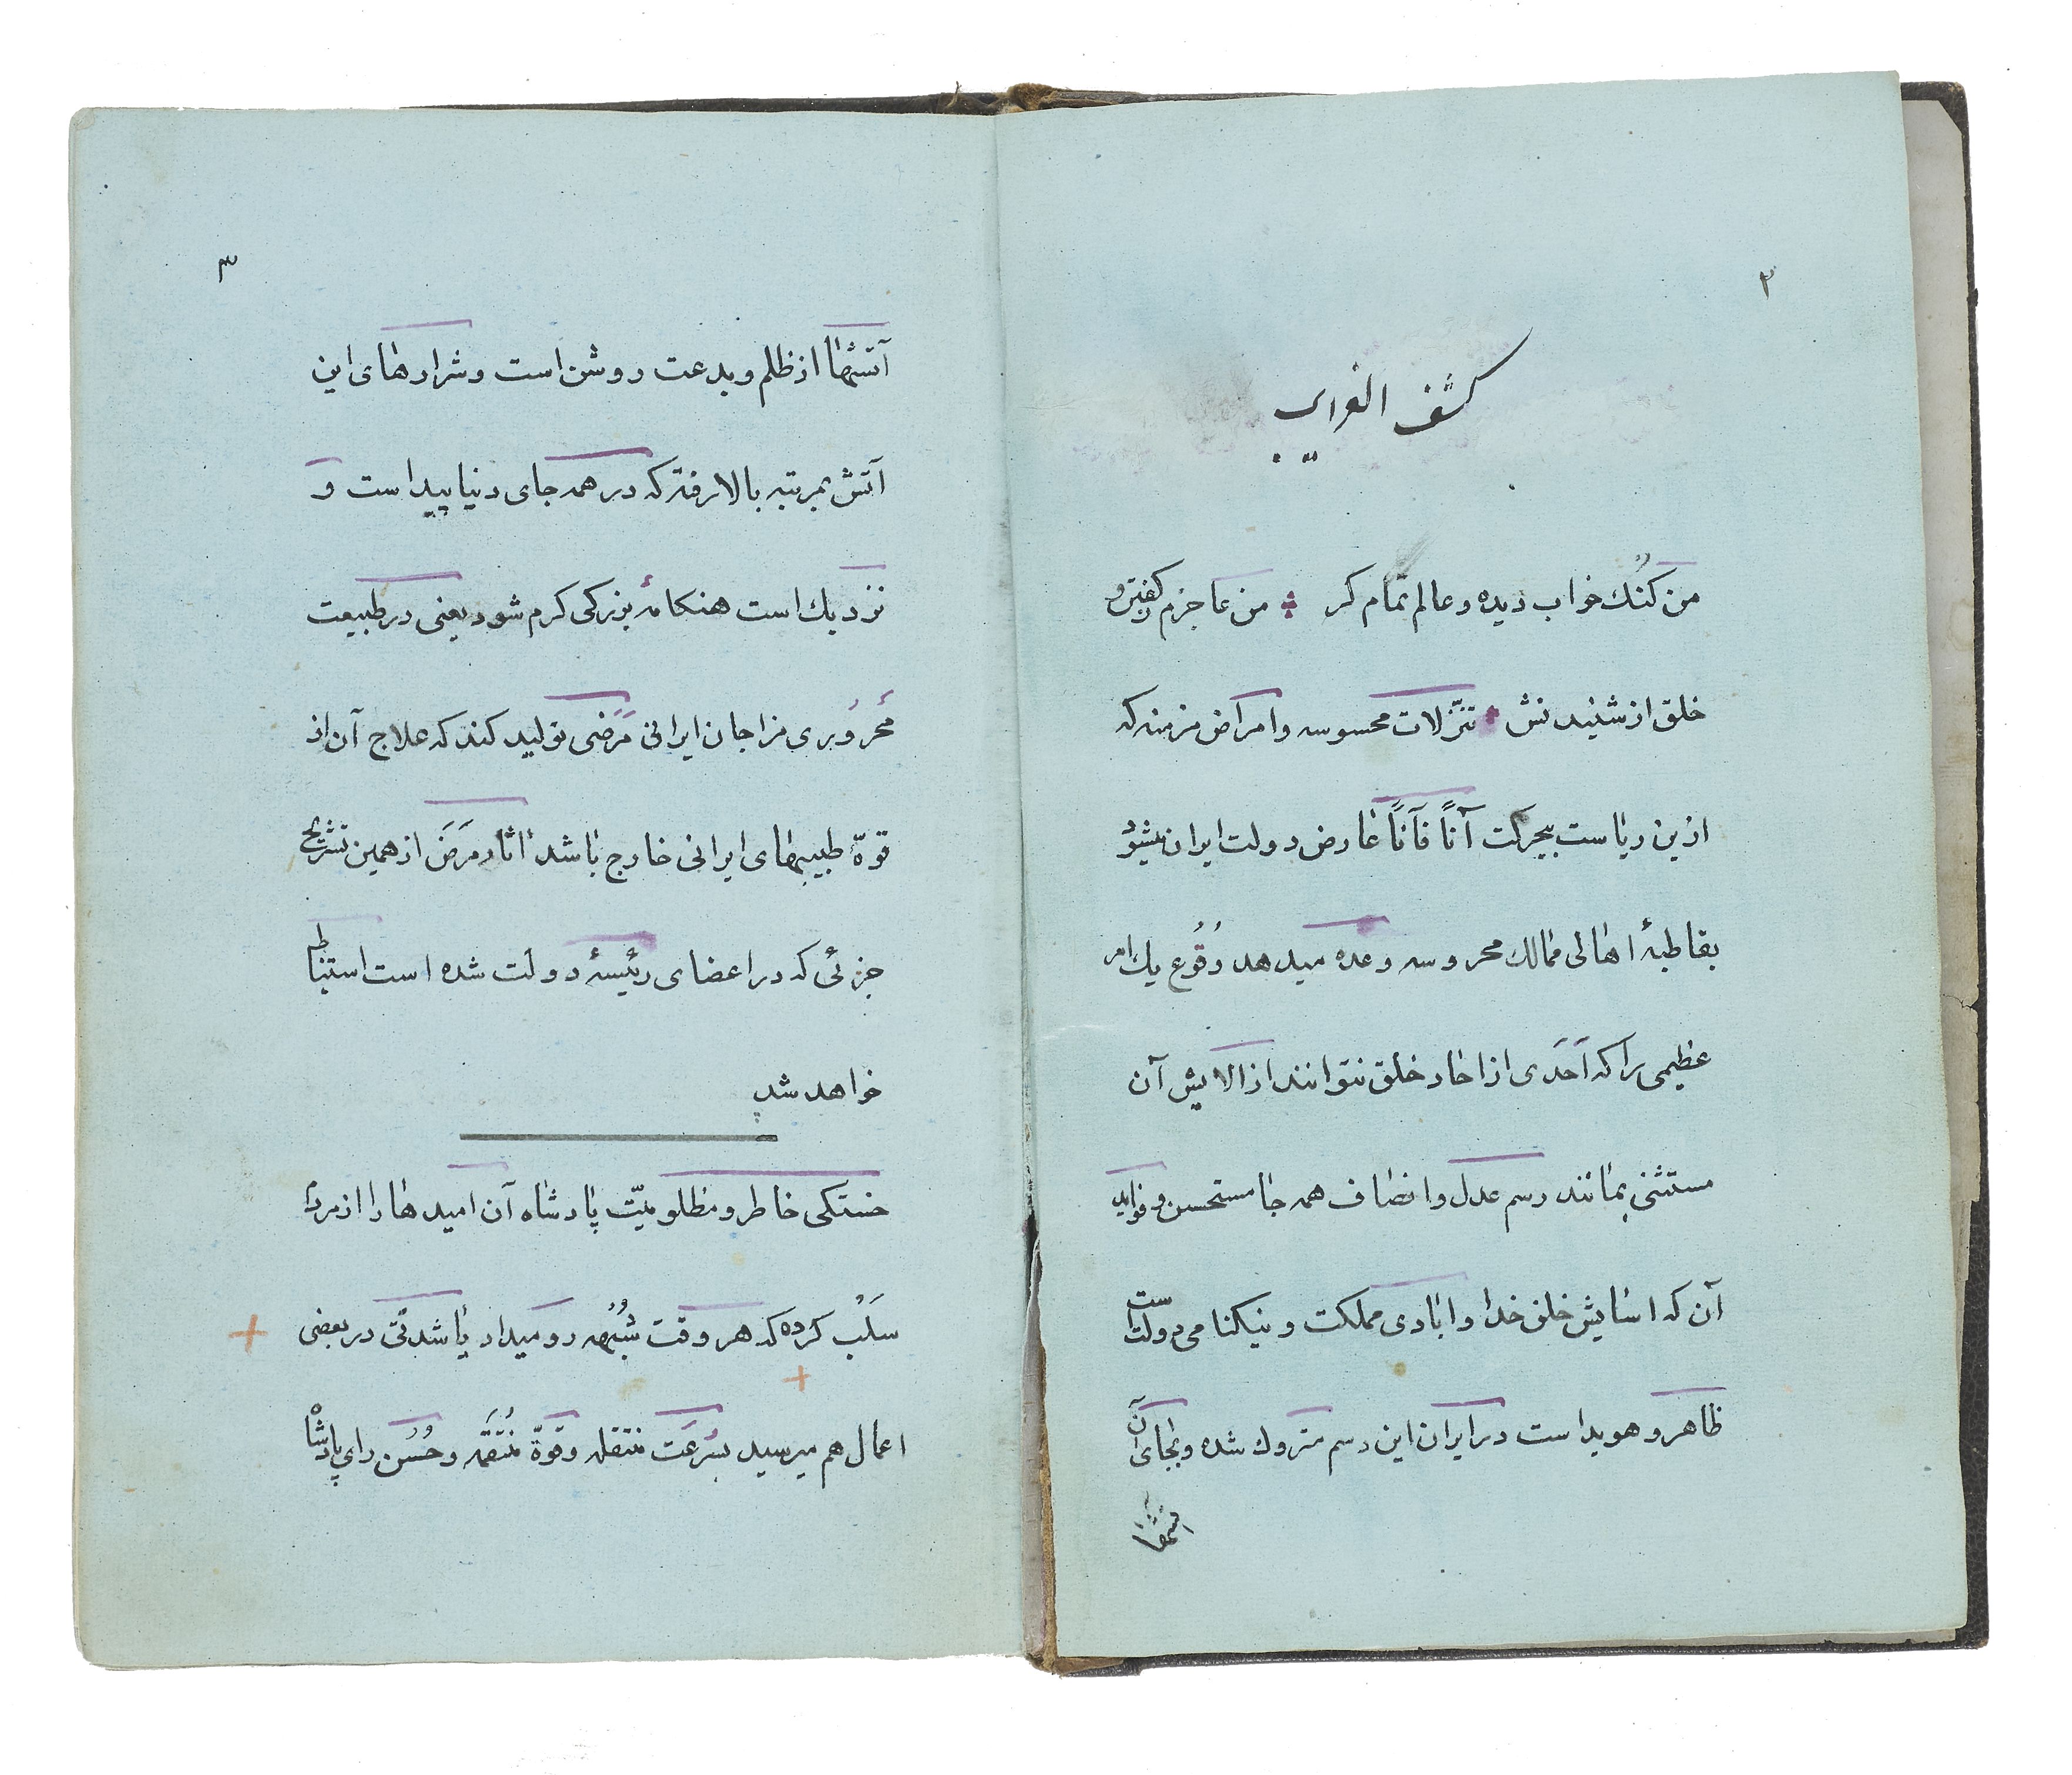 ۲
کشف الغرایب
من کنك خواب دیده و عالم تمام کر من عاجزم ز کفتن و
خلق از شنیدنش تنزّلات محسوسه و امراض مزمنه که
ازین ریاست بیحرکت آناً فآناً عارض دولت ایران میشود
بقاطبهٔ اهالی ممالك محروسه وعده میدهد وُقُوع یك امر
عظیمی را که اَحَدی از احاد خلق نتوانند از الایش آن
مستثنی بمانند رسم عدل و انصاف همه جا مستحسن و فواید
آن که اسایش خلق خدا و ابادی مملکت و نیکنامی دولت است
ظاهر و هویداست در ایران این رسم متروك شده و بجای آن
آتشها
۳
آتشها از ظلم و بدعت روشن است و شرارهای این
آتش بمرتبه بالا رفته که در همه جای دنیا پیداست و
نزدیك است هنکامهٔ بزرکی کرم شود یعنی در طبیعت
محروُری مزاجان ایرانی مَرَضی تولید کند که علاج آن از
قوهّ طبیبهای ایرانی خارج باشد اثار مَرَض از همین تشریح
جزئی که در اعضای رئیسهٔ دولت شده است استنباط
خواهد شد
خستکی خاطر و مظلومیّت پادشاه آن امیدها را از مردم
سَلْب کرده که هر وقت شُبُهه رو میداد یا شدتی در بعضی
اعمال هم میرسید بسُرعَت منتقله و قوّهٔ مُنتَقَمه و حُسُن رای پادشاه